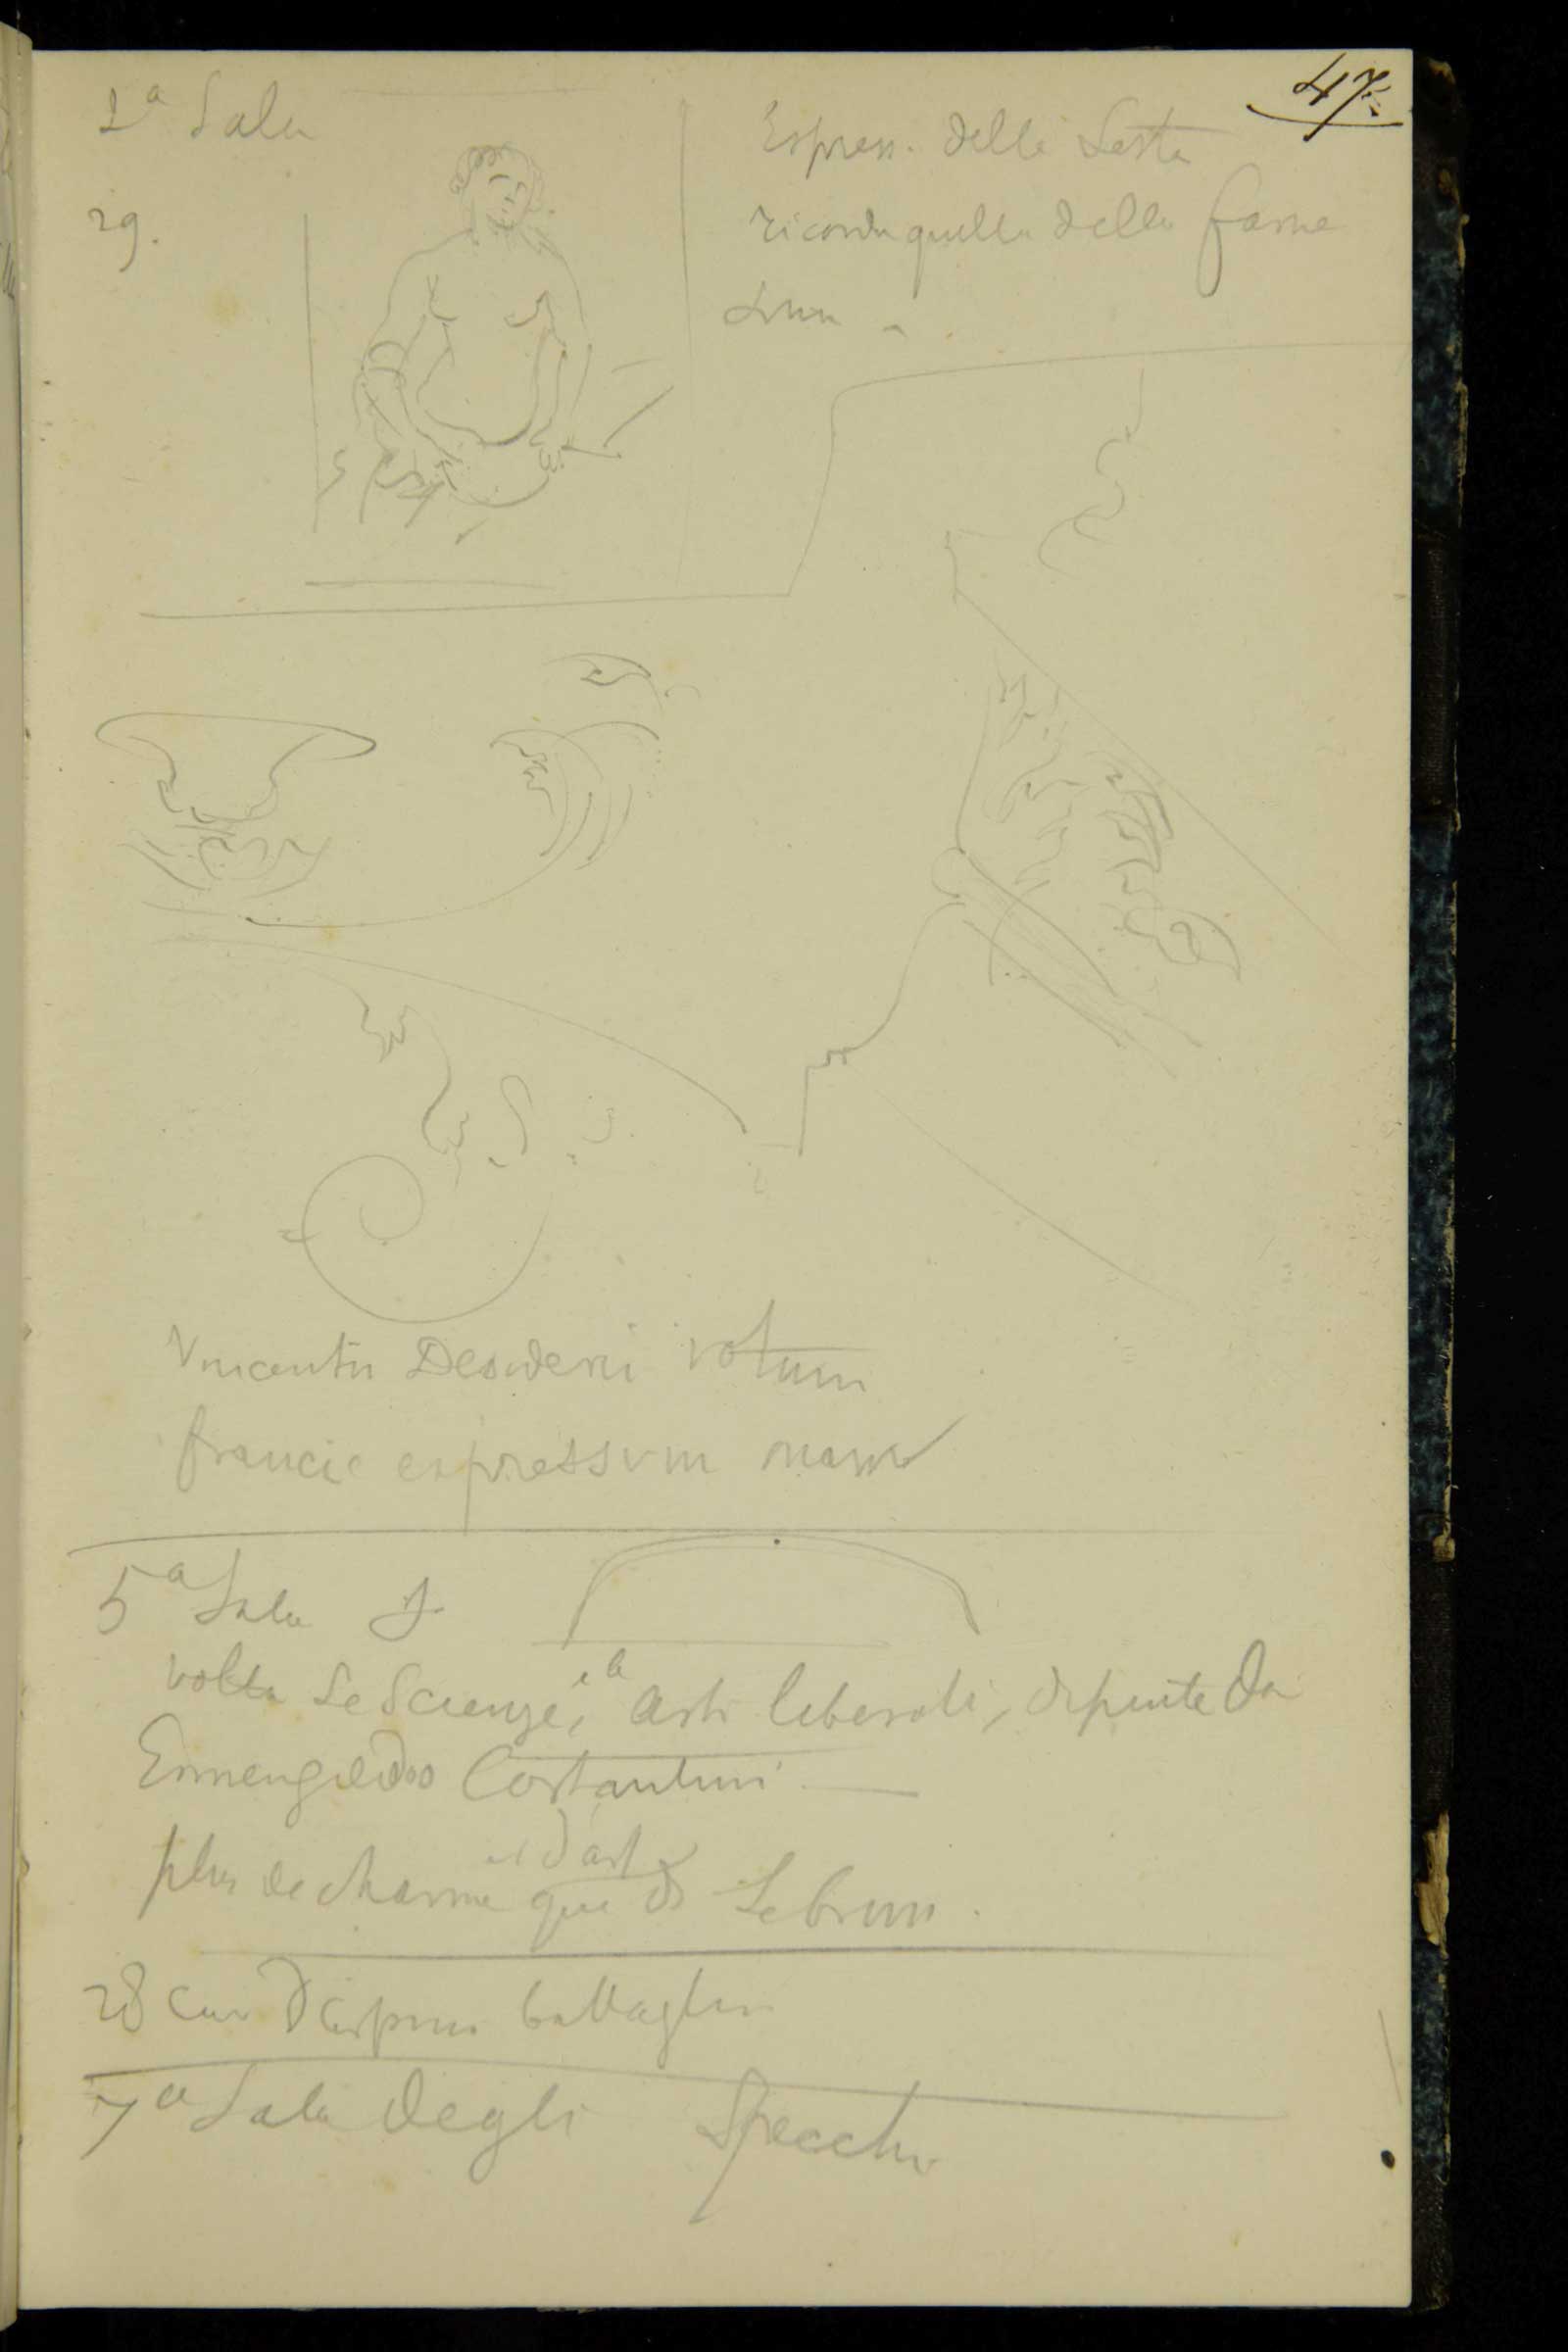 47
1ª Sala
29.
Espress. della testa
ricorda quella della fame
Vincentii Desiderii votum
Francie expressum manu
5ª Sala
volta Le Scienze, e le arti liberali, dipinte da
Ermengildo Costantini
plus de charme et d'art que de Lebrun.
28 Cav d'Arpino battaglia
7ª Sala degli Specchi